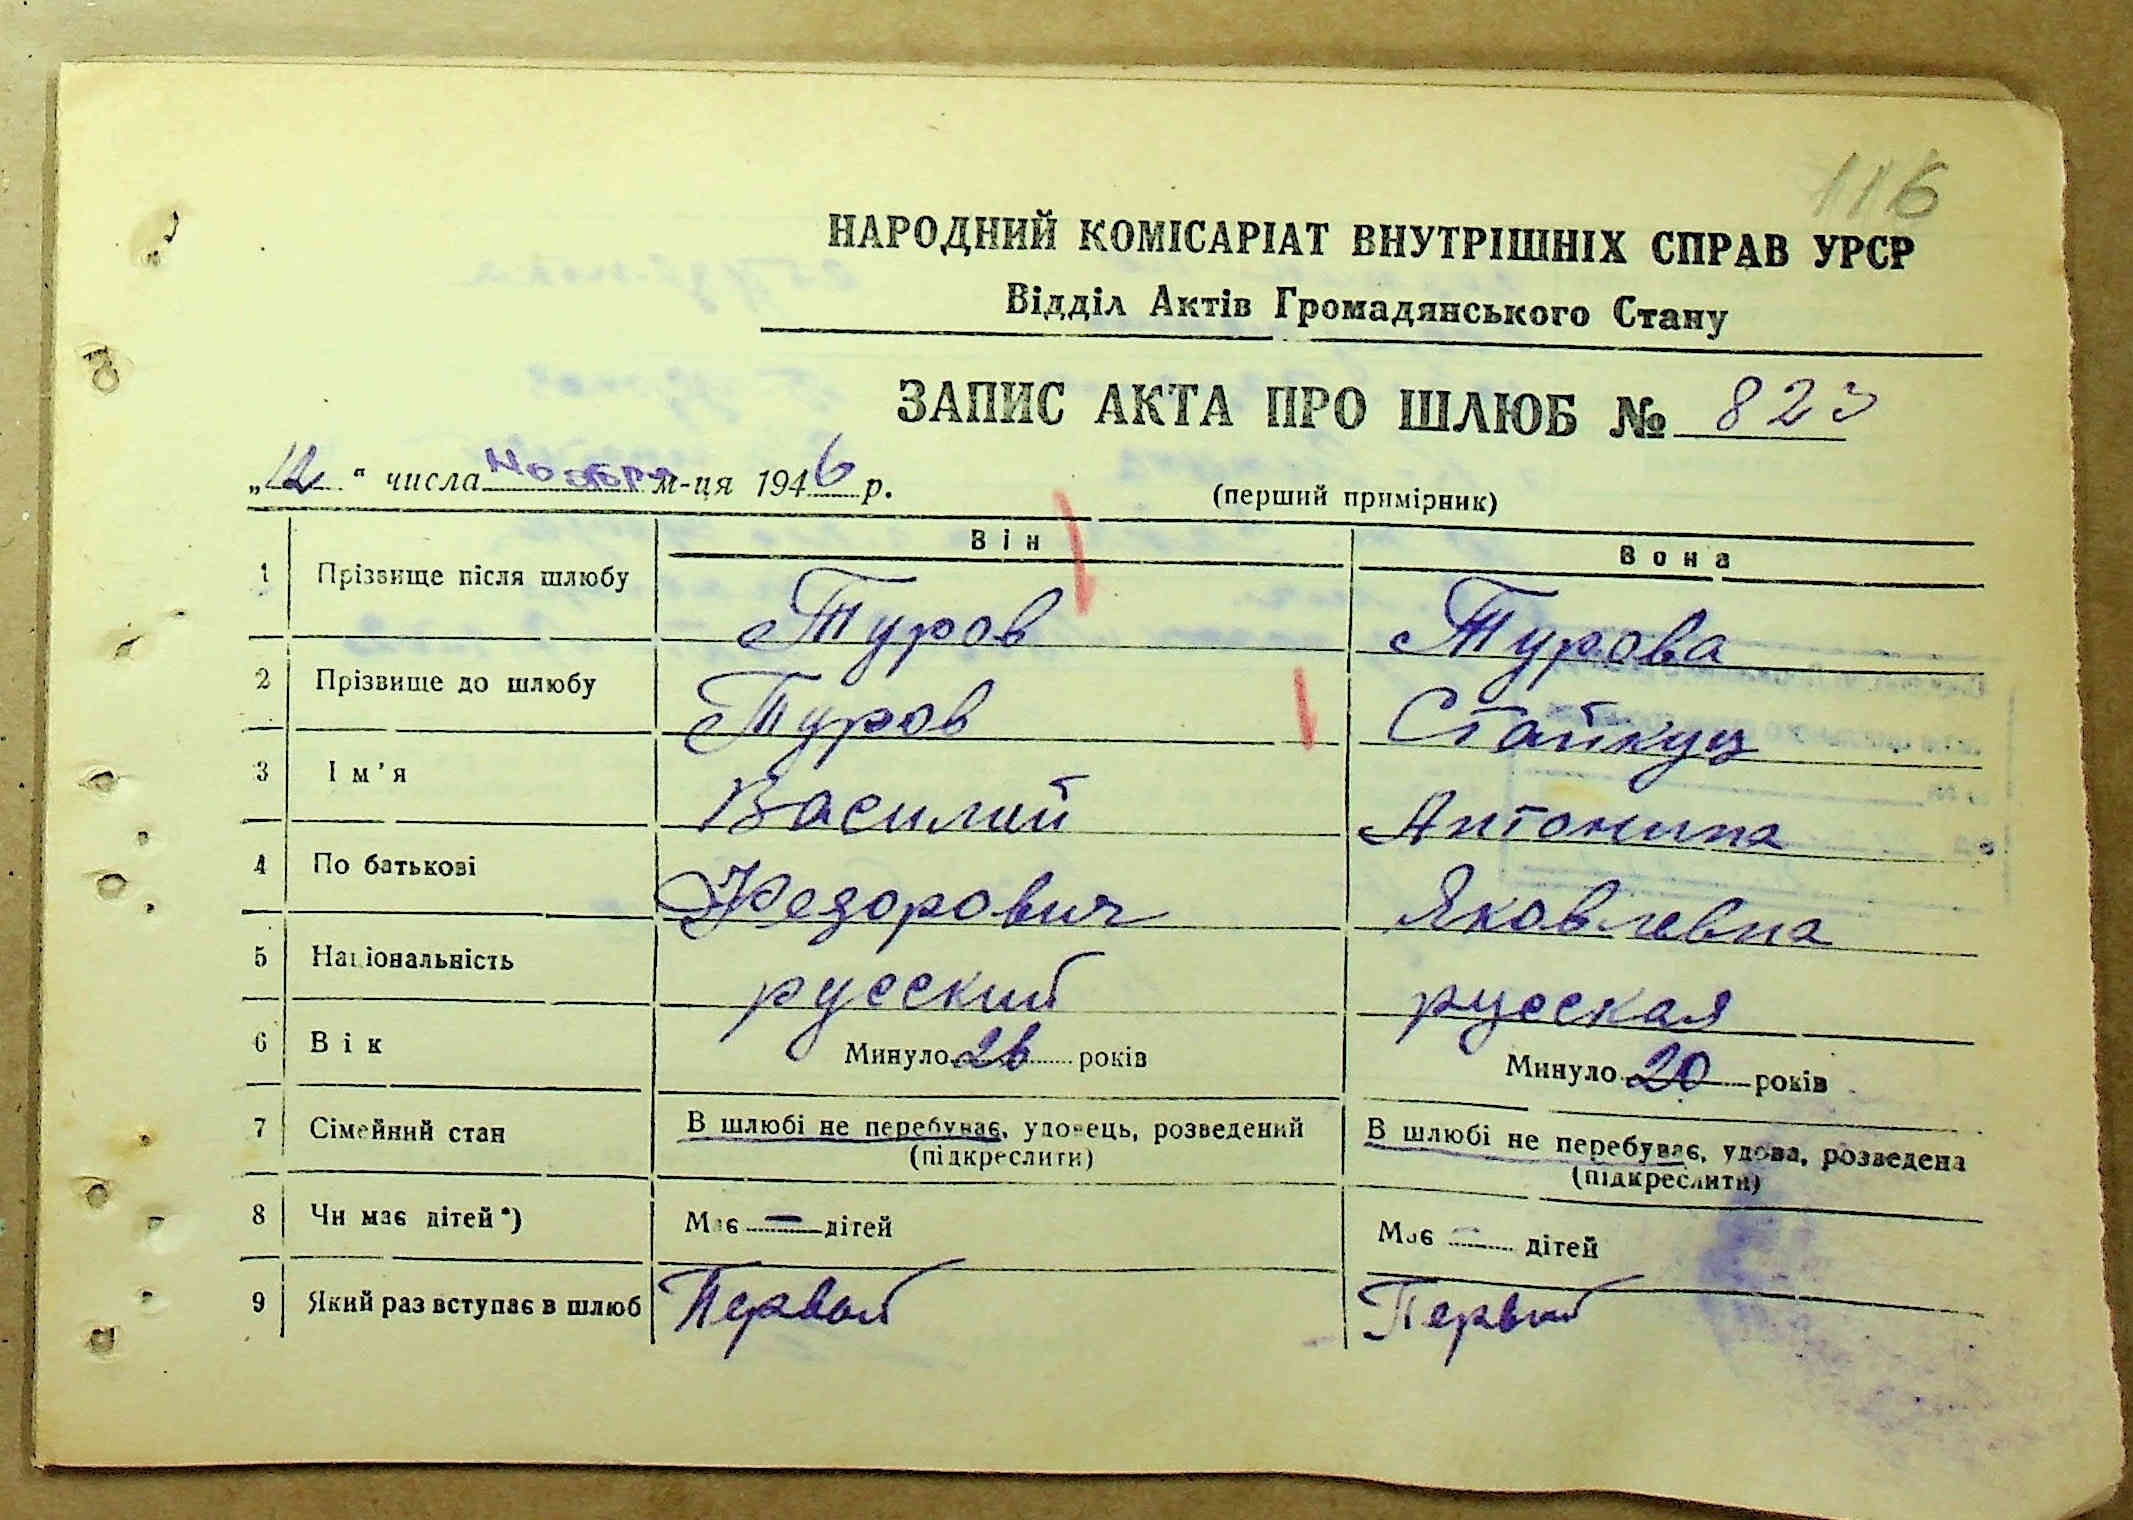 116
НАРОДНИЙ КОМІСАРІАТ ВНУТРІШНІХ СПРАВ УРСР
Відділ Актів Громадянського Стану
ЗАПИС АКТА ПРО ШЛЮБ № 823
„12“ числа ноября м-ця 1946 р.
(перший примірник)
Він Вона
1 Прізвище після шлюбу Туров Турова
2 Прізвище до шлюбу Туров Стайкуц
3 Ім'я Василий Антонина
4 По батькові Федорович Яковлевна
5 Національність русский русская
6 Вік Минуло 26 років Минуло 20 років
7 Сімейний стан В шлюбі не перебуває, удовець, розведений В шлюбі не перебуває, удова, розведена
(підкреслити) (підкреслити)
8 Чи має дітей*) Має — дітей Має — дітей
9 Який раз вступає в шлюб Первый Первый